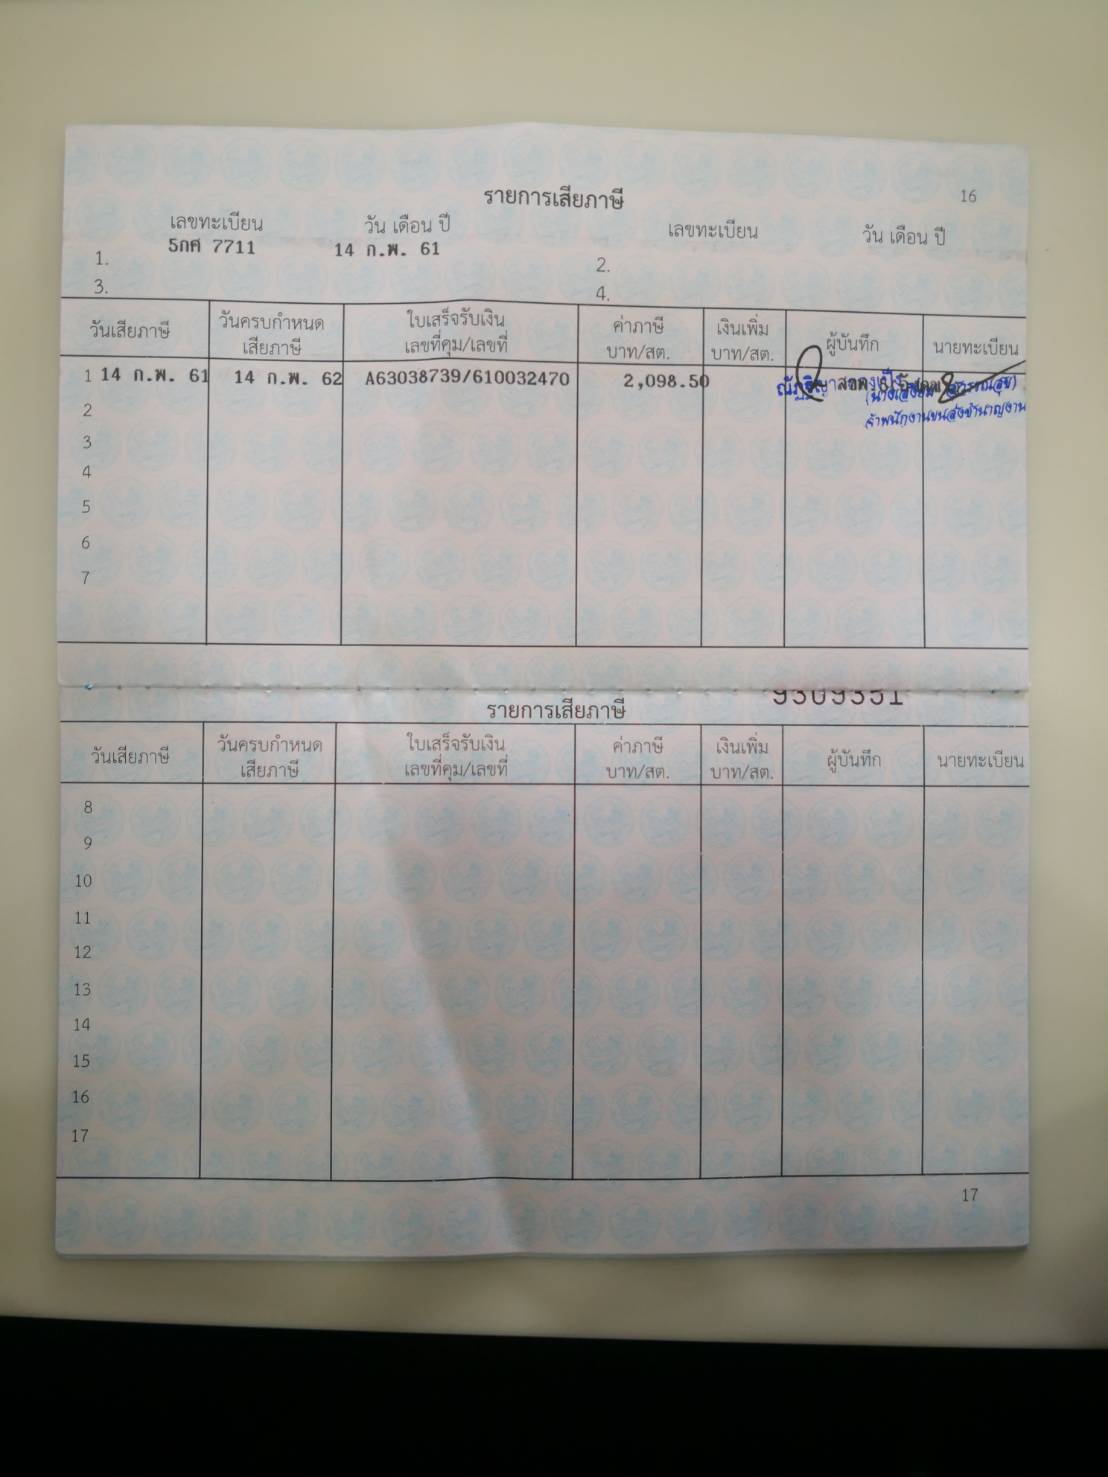 16
รายการเสียภาษี
เลขทะเบียน วัน เดือน ปี เลขทะเบียน วัน เดือน ปี
1. 5กศ 7711 14 ก.พ. 61 2.
3. 4.
วันเสียภาษี วันครบกำหนดเสียภาษี ใบเสร็จรับเงิน เลขที่คุม/เลขที่ ค่าภาษี บาท/สต. เงินเพิ่ม บาท/สต. ผู้บันทึก นายทะเบียน
1 14 ก.พ. 61 14 ก.พ. 62 A63038739/610032470 2,098.50
เจ้าพนักงานขนส่งชำนาญงาน
2
3
4
5
6
7
9309351
รายการเสียภาษี
วันเสียภาษี วันครบกำหนดเสียภาษี ใบเสร็จรับเงิน เลขที่คุม/เลขที่ ค่าภาษี บาท/สต. เงินเพิ่ม บาท/สต. ผู้บันทึก นายทะเบียน
8
9
10
11
12
13
14
15
16
17
17